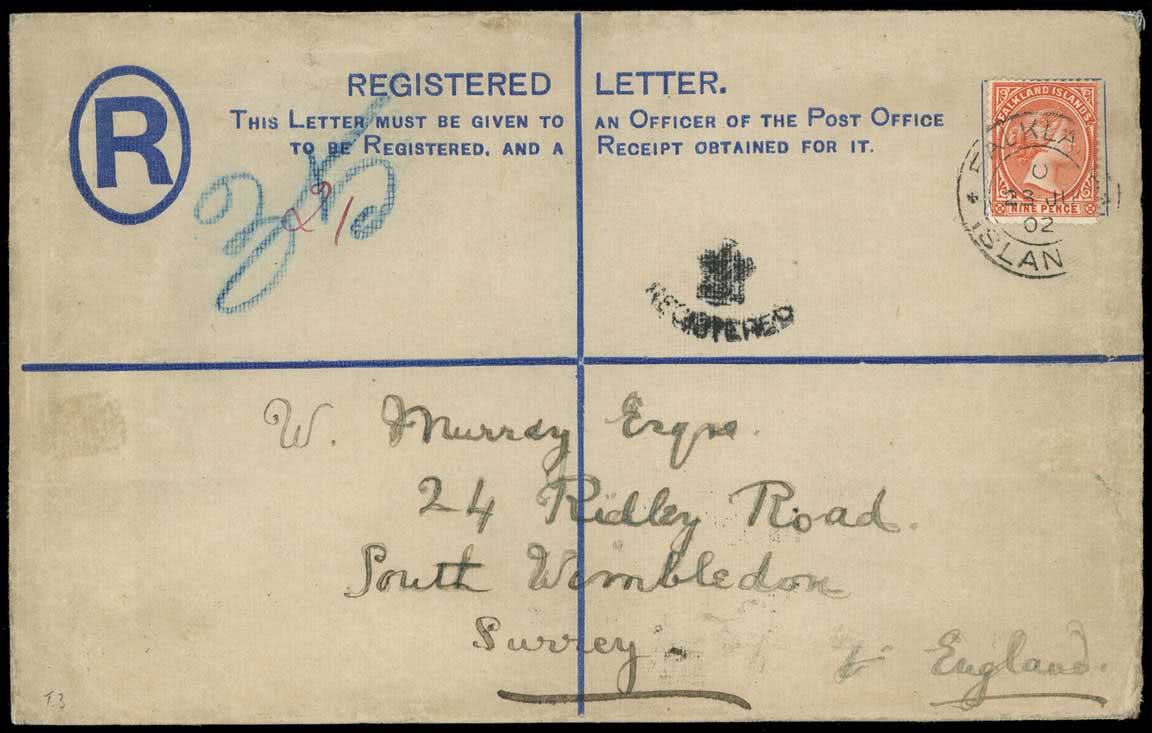 R
REGISTERED LETTER.
THIS LETTER MUST BE GIVEN TO AN OFFICER OF THE POST OFFICE
TO BE REGISTERED, AND A RECEIPT OBTAINED FOR IT.
FALKLAND ISLANDS
NINE PENCE
FALKLA
C
23 JU
02
ISLAN
REGISTERED
W. Murray Esqre.
24 Ridley Road.
South Wimbledon
Surrey
England.